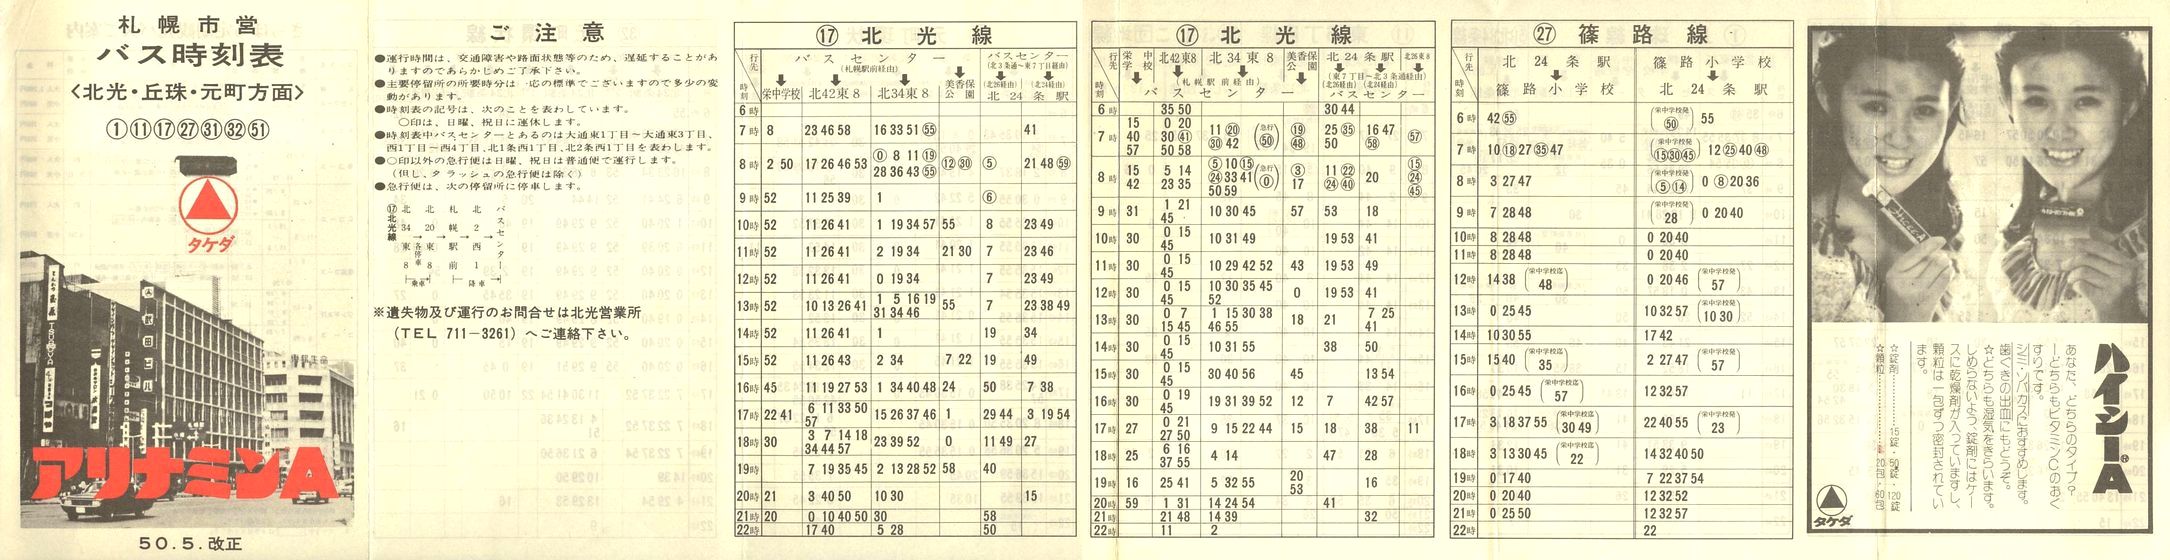 札幌市営
バス時刻表
<北光・丘珠・元町方面>
①⑪⑰㉗㉛㉜�51
タケダ
アリナミンA
50.5.改正
ご注意
●運行時間は、交通障害や路面状態等のため、遅延することがあ
りますのであらかじめご了承下さい。
●主要停留所の所要時分は一応の標準でございますので多少の変
動があります。
●時刻表の記号は、次のことを表わしています。
○印は、日曜、祝日に運休します。
●時刻表中バスセンターとあるのは大通東1丁目~大通東3丁目、
西1丁目~西4丁目、北1条西1丁目、北2条西1丁目を表わします。
●○印以外の急行便は日曜、祝日は普通便で運行します。
(但し、夕ラッシュの急行便は除く)
●急行便は、次の停留所に停車します。
⑰北光線
北34東8
→
北20東8
各停車
→
札幌駅前
→
北2西1
→
バスセンター
乗車
降車
※遺失物及び運行のお問合せは北光営業所
(TEL 711-3261)へご連絡下さい。
⑰ 北光線
行先 時刻 バスセンター (札幌駅前経由) バスセンター (北3条通~東7丁目経由)
栄中学校 北42東8 北34東8 美香保公園 (北26経由) (北24経由) 北24条駅
6時
7時 8 23 46 58 16 33 51 �55 41
8時 2 50 17 26 46 53 ⓪ 8 11 ⑲ 28 36 43 �55 ⑫㉚ ⑤ 21 48 �59
9時 52 11 25 39 1 ⑥
10時 52 11 26 41 1 19 34 57 55 8 23 49
11時 52 11 26 41 2 19 34 21 30 7 23 46
12時 52 11 26 41 0 19 34 7 23 49
13時 52 10 13 26 41 1 5 16 19 31 34 46 55 7 23 38 49
14時 52 11 26 41 1 19 34
15時 52 11 26 43 2 34 7 22 19 49
16時 45 11 19 27 53 1 34 40 48 24 50 7 38
17時 22 41 6 11 33 50 57 15 26 37 46 1 29 44 3 19 54
18時 30 3 7 14 18 34 44 57 23 39 52 0 11 49 27
19時 7 19 35 45 2 13 28 52 58 40
20時 21 3 40 50 10 30 15
21時 20 0 10 40 50 30 58
22時 17 40 5 28 50
⑰ 北光線
行先 時刻 栄中学校 北42東8 北34東8 美香保公園 北24条駅 北26東8
(札幌駅前経由) (東7丁目~北3条通経由)
(北26経由) (北24経由)
バスセンター バスセンター
6時 35 50 30 44
7時 15 40 57 0 20 30 ㊶ 50 58 11 ⑳ ㉚ 42 (急行 ㊿) ⑲ ㊽ 25 ㉟ 50 16 47 �58 �57
8時 15 42 5 14 23 35 ⑤ 10 ⑮ ㉔ 33 41 50 59 (急行 ⓪) ③ 17 11 ㉒ ㉔ ㊵ 20 ⑮ ㉔ ㊺
9時 31 1 21 45 10 30 45 57 53 18
10時 30 0 15 45 10 31 49 19 53 41
11時 30 0 15 45 10 29 42 52 43 19 53 49
12時 30 0 15 45 10 30 35 45 52 0 19 53 41
13時 30 0 7 15 45 1 15 30 38 46 55 18 21 7 25 41
14時 30 0 15 45 10 31 55 38 50
15時 30 0 15 45 30 40 56 45 13 54
16時 30 0 19 45 19 31 39 52 12 7 42 57
17時 27 0 21 27 50 9 15 22 44 15 18 38 11
18時 25 6 16 37 55 4 14 47 28
19時 16 25 41 5 32 55 20 53 16
20時 59 1 31 14 24 54 41
21時 21 48 14 39 32
22時 11 2
㉗ 篠路線
行先 時刻 北24条駅 篠路小学校
篠路小学校 北24条駅
6時 42 �55 (栄中学校発 ㊿) 55
7時 10 ⑱ 27 ㉟ 47 (栄中学校発 ⑮㉚㊺) 12 ㉕ 40 ㊽
8時 3 27 47 (栄中学校発 ⑤⑭) 0 ⑧ 20 36
9時 7 28 48 (栄中学校発 28) 0 20 40
10時 8 28 48 0 20 40
11時 8 28 48 0 20 40
12時 14 38 (栄中学校迄 48) 0 20 46 (栄中学校発 57)
13時 0 25 45 10 32 57 (栄中学校発 10 30)
14時 10 30 55 17 42
15時 15 40 (栄中学校迄 35) 2 27 47 (栄中学校発 57)
16時 0 25 45 (栄中学校迄 57) 12 32 57
17時 3 18 37 55 (栄中学校迄 30 49) 22 40 55 (栄中学校発 23)
18時 3 13 30 45 (栄中学校迄 22) 14 32 40 50
19時 0 17 40 7 22 37 54
20時 0 20 40 12 32 52
21時 0 25 50 12 32 57
22時 22
ハイシーA
あなた、どちらのタイプ?
―どちらもビタミンCのおく
すりです。
シミ・ソバカスにおすすめします。
歯ぐきの出血にもどうぞ。
☆どちらも湿気をきらいます。
しめらないよう、錠剤にはケー
スに乾燥剤が入っていますし、
顆粒は一包ずつ密封されてい
ます。
☆錠剤……15錠・50錠・120錠
☆顆粒……20包・60包
タケダ